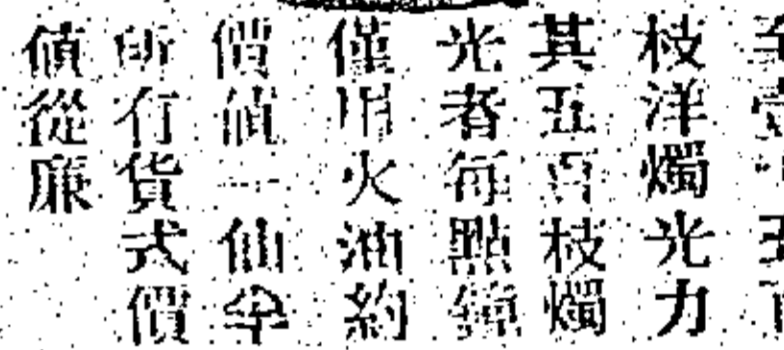 枝洋燭光力
其五百枝燭
光者每點鐘
僅用火油約
價值一仙半
所有貨式價
值從廉